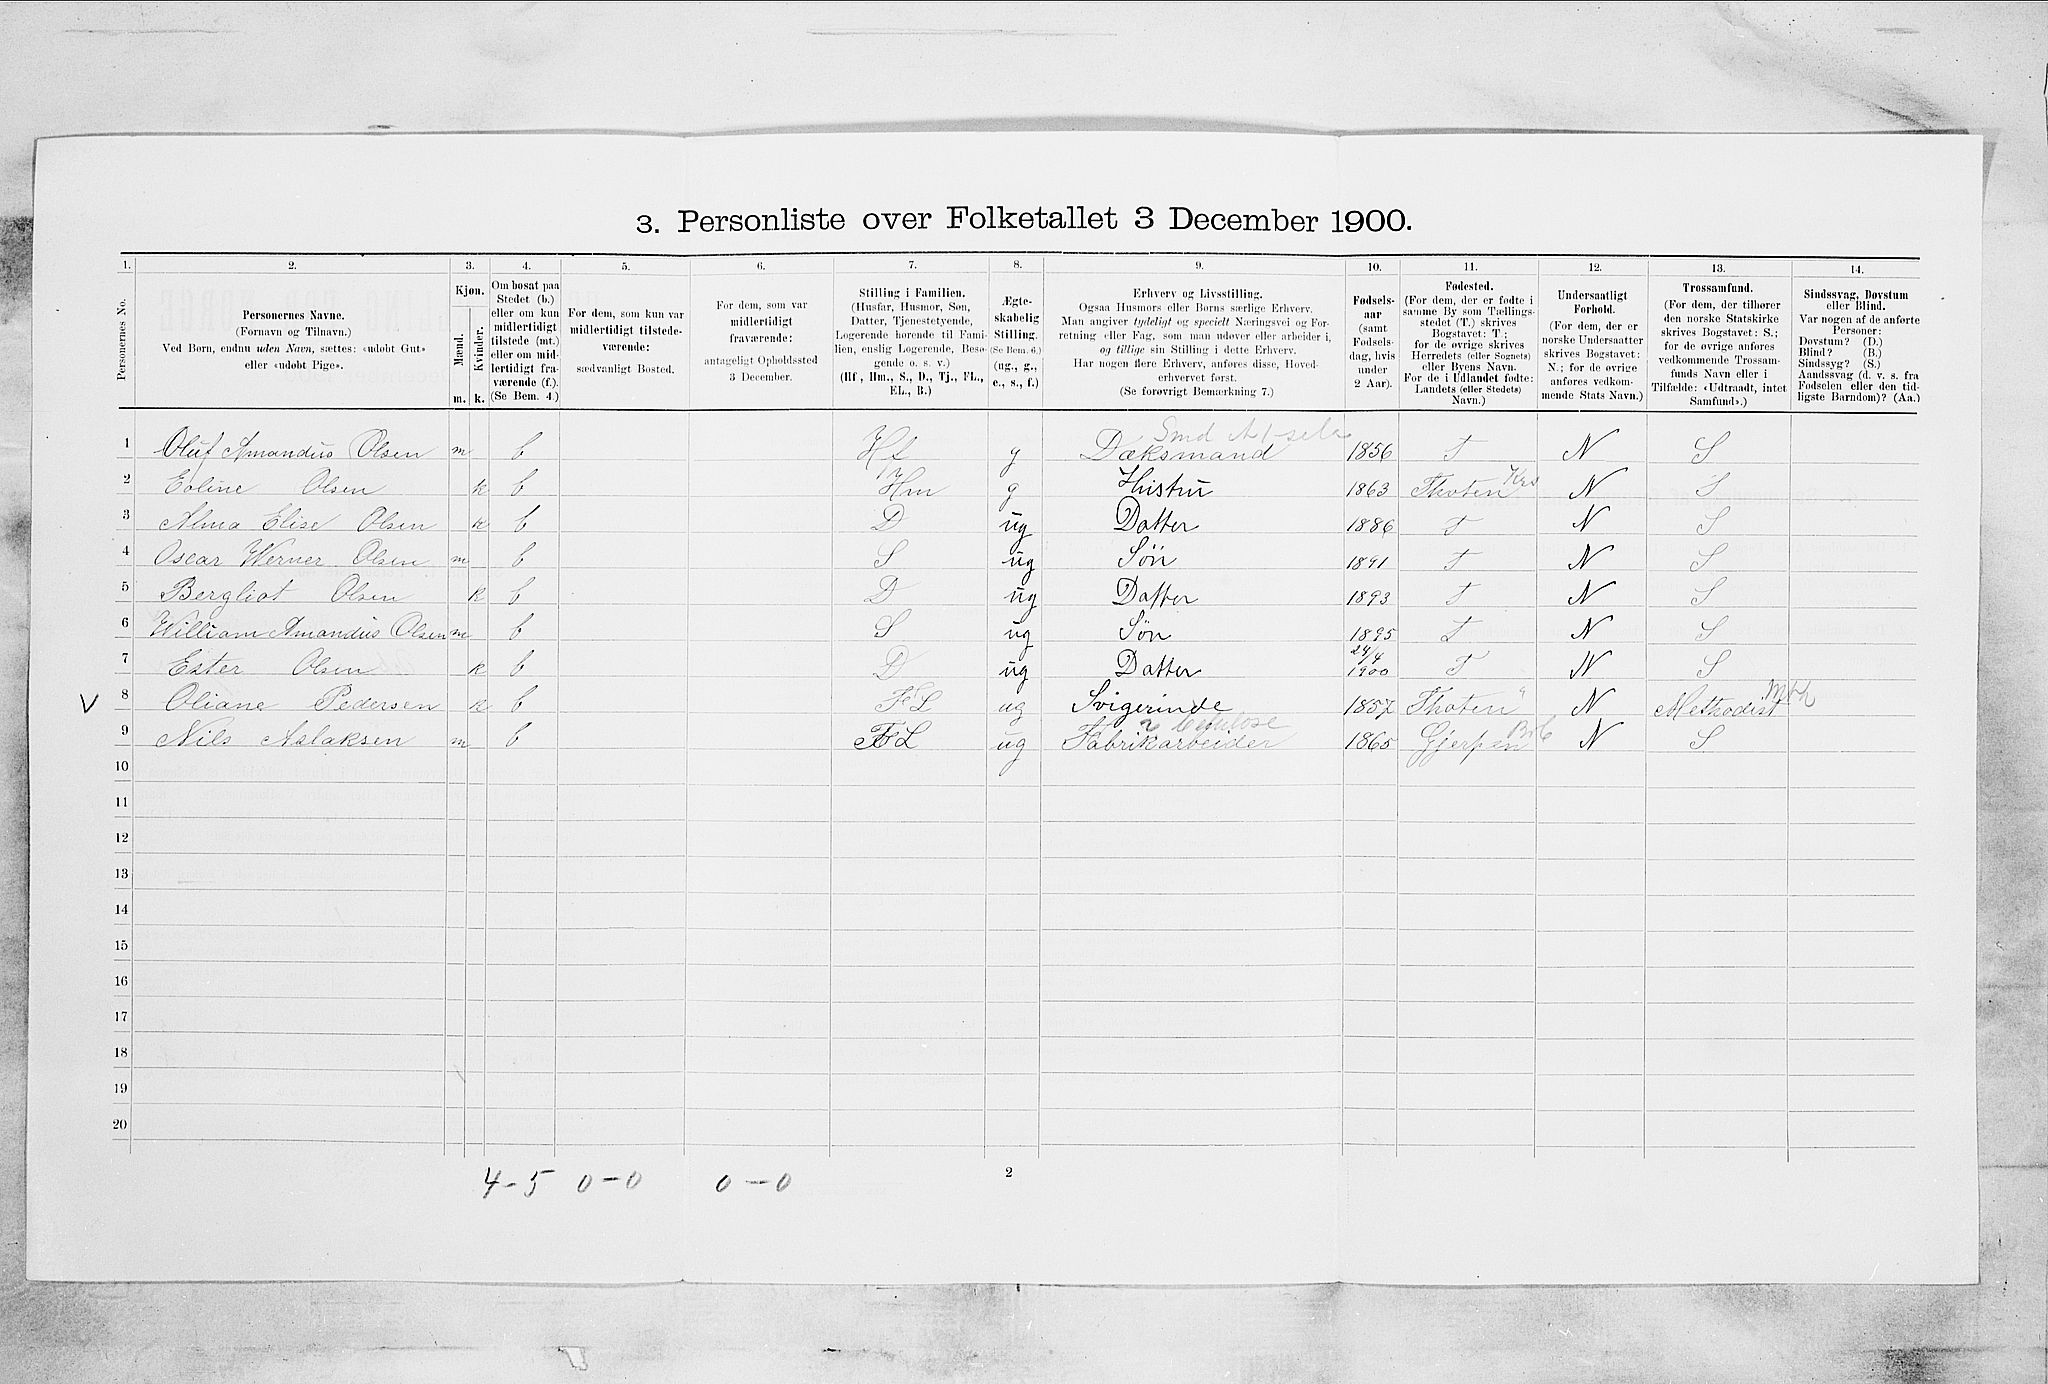 3. Personliste over Folketallet 3 December 1900.
1. 2. 3. 4. 5. 6. 7. 8. 9. 10. 11. 12. 13. 14.
Personernes No.
Personernes Navne.
(Fornavn og Tilnavn.)
Ved Børn, endnu uden Navn, sættes: «udøbt Gut»
eller «udøbt Pige».
Kjøn.
Mænd.
Kvinder.
m. k.
Om bosat paa
Stedet (b.)
eller om kun
midlertidigt
tilstede (mt.)
eller om mid-
lertidigt fra-
værende (f.).
(Se Bem. 4.)
For dem, som kun var
midlertidigt tilstede-
værende:
sædvanligt Bosted.
For dem, som var
midlertidigt
fraværende:
antageligt Opholdssted
3 December.
Stilling i Familien.
(Husfar, Husmor, Søn,
Datter, Tjenestetyende,
Logerende hørende til Fami-
lien, enslig Logerende, Besø-
gende o. s. v.)
(Hf, Hm., S., D., Tj., FL.,
EL., B.)
Ægte-
skabelig
Stilling.
(Se Bem. 6.)
(ug., g.,
e., s., f.)
Erhverv og Livsstilling.
Ogsaa Husmors eller Børns særlige Erhverv.
Man angiver tydeligt og specielt Næringsvei og For-
retning eller Fag, som man udøver eller arbeider i,
og tillige sin Stilling i dette Erhverv.
Har nogen flere Erhverv, anføres disse, Hoved-
erhvervet først.
(Se forøvrigt Bemærkning 7.)
Fødsels-
aar
(samt
Fødsels-
dag, hvis
under
2 Aar).
Fødested.
(For dem, der er fødte i
samme By som Tællings-
stedet (T.) skrives
Bogstavet: T;
for de øvrige skrives
Herredets (eller Sognets)
eller Byens Navn.
For de i Udlandet fødte:
Landets (eller Stedets)
Navn.)
Undersaatligt
Forhold.
(For dem, der er
norske Undersaatter
skrives Bogstavet:
N.; for de øvrige
anføres vedkom-
mende Stats Navn.)
Trossamfund.
(For dem, der tilhører
den norske Statskirke
skrives Bogstavet: S.;
for de øvrige anføres
vedkommende Trossam-
funds Navn eller i
Tilfælde: «Udtraadt, intet
Samfund».)
Sindssvag, Døvstum
eller Blind.
Var nogen af de anførte
Personer:
Døvstum? (D.)
Blind? (B.)
Sindssyg? (S.)
Aandssvag (d. v. s. fra
Fødselen eller den tid-
ligste Barndom)? (Aa.)
1 Oluf Amandus Olsen m b Hf g Dæksmand 1856 T N S
2 Eoline Olsen k b Hm g Hustru 1863 Thoten Krs N S
3 Alma Elise Olsen k b D ug Datter 1886 T N S
4 Oscar Werner Olsen m b S ug Søn 1891 T N S
5 Bergliot Olsen k b D ug Datter 1893 T N S
6 William Amandus Olsen m b S ug Søn 1895 T N S
7 Ester Olsen k b D ug Datter 24/4 1900 T N S
V 8 Oliane Pedersen k b FL ug Svigerinde 1857 Thoten " N Methodist
9 Nils Aslaksen m b FL ug Fabrikarbeider Celulose 1865 Gjerpen N S
10
11
12
13
14
15
16
17
18
19
20
4-5 0-0 0-0
2